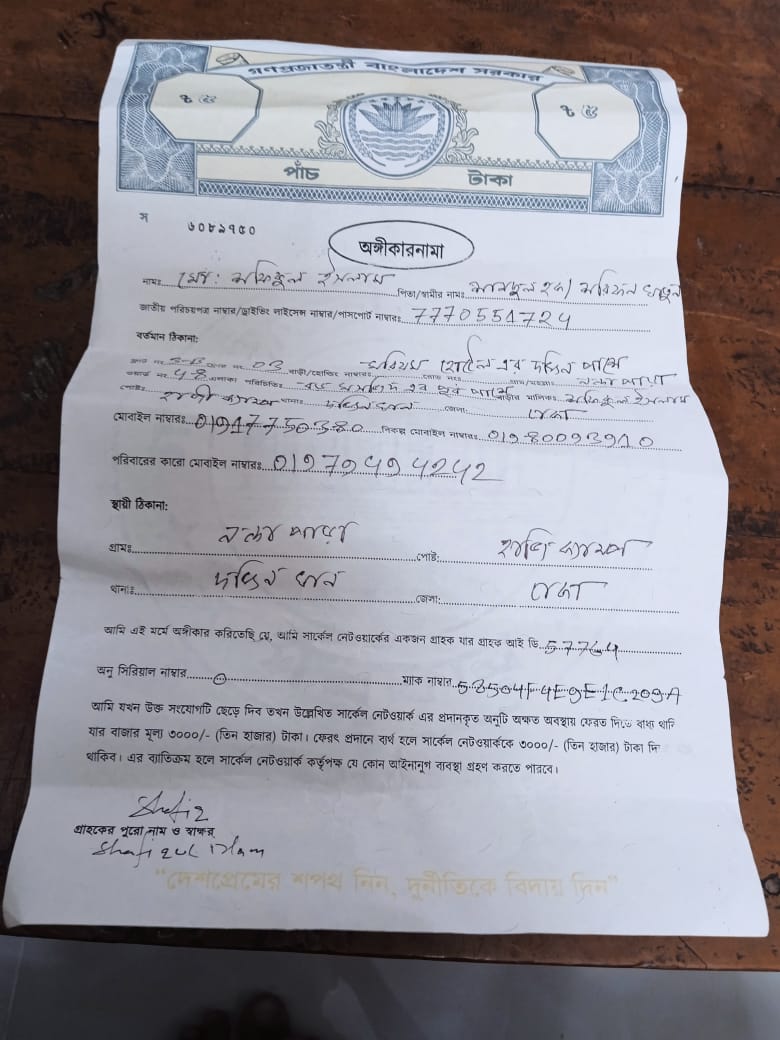 গণপ্রজাতন্ত্রী বাংলাদেশ সরকার
৳ ৫ ৳ ৫
পাঁচ টাকা
স ৬০৮৯৭৫০
অঙ্গীকারনামা
নামঃ মোঃ সফিকুল ইসলাম পিতা/স্বামীর নামঃ সামছুল হক/
জাতীয় পরিচয়পত্র নাম্বার/ড্রাইভিং লাইসেন্স নাম্বার/পাসপোর্ট নাম্বারঃ 7770551724
বর্তমান ঠিকানা:
03 বাড়ী/হোল্ডিং নাম্বারঃ হোটেল এর দক্ষিন পাশে
ওয়ার্ড নং 48 এলাকা পরিচিতিঃ এর পূর্ব পাশে বাড়ীর মালিকঃ সফিকুল ইসলাম
পোষ্টঃ হাজী ক্যাম্প থানাঃ দক্ষিনখান জেলাঃ ঢাকা
মোবাইল নাম্বারঃ 01917750380 বিকল্প মোবাইল নাম্বারঃ 01980093910
পরিবারের কারো মোবাইল নাম্বারঃ 01979494242
স্থায়ী ঠিকানা:
গ্রামঃ পোষ্ট: হাজি ক্যাম্প
থানাঃ দক্ষিন খান জেলা: ঢাকা
আমি এই মর্মে অঙ্গীকার করিতেছি যে, আমি সার্কেল নেটওয়ার্কের একজন গ্রাহক যার গ্রাহক আই ডি 57764
অনু সিরিয়াল নাম্বার ম্যাক নাম্বার 58504F4E9E1C209A
আমি যখন উক্ত সংযোগটি ছেড়ে দিব তখন উল্লেখিত সার্কেল নেটওয়ার্ক এর প্রদানকৃত অনুটি অক্ষত অবস্থায় ফেরত দিতে বাধ্য থাকি
যার বাজার মূল্য ৩০০০/- (তিন হাজার) টাকা। ফেরৎ প্রদানে ব্যর্থ হলে সার্কেল নেটওয়ার্ককে ৩০০০/- (তিন হাজার) টাকা দি
থাকিব। এর ব্যতিক্রম হলে সার্কেল নেটওয়ার্ক কর্তৃপক্ষ যে কোন আইনানুগ ব্যবস্থা গ্রহণ করতে পারবে।
Shafiq
গ্রাহকের পুরো নাম ও স্বাক্ষর
Shafiqul Islam
"দেশপ্রেমের শপথ নিন, দুর্নীতিকে বিদায় দিন"